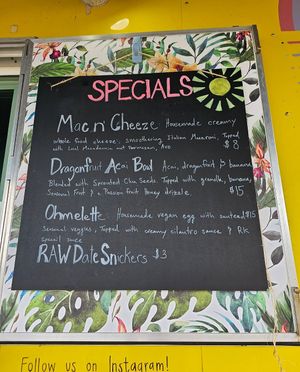 SPECIALS
Mac n' Cheeze Housemade creamy
whole food cheeze, smothering Italian Macaroni, Topped
with Local Macadamia nut Parmesan, Avo $8
Dragonfruit Acai Bowl Acai, dragonfruit & banana
Blended with Sprouted Chia Seeds. Topped with granola, banana,
Seasonal Fruit & Passion fruit Honey drizzle. $15
Ohmelette: Housemade vegan egg with sauteed $15
Seasonal veggies, Topped with creamy cilantro sauce & RK
Special sauce
RAW Date Snickers $3
Follow us on Instagram!